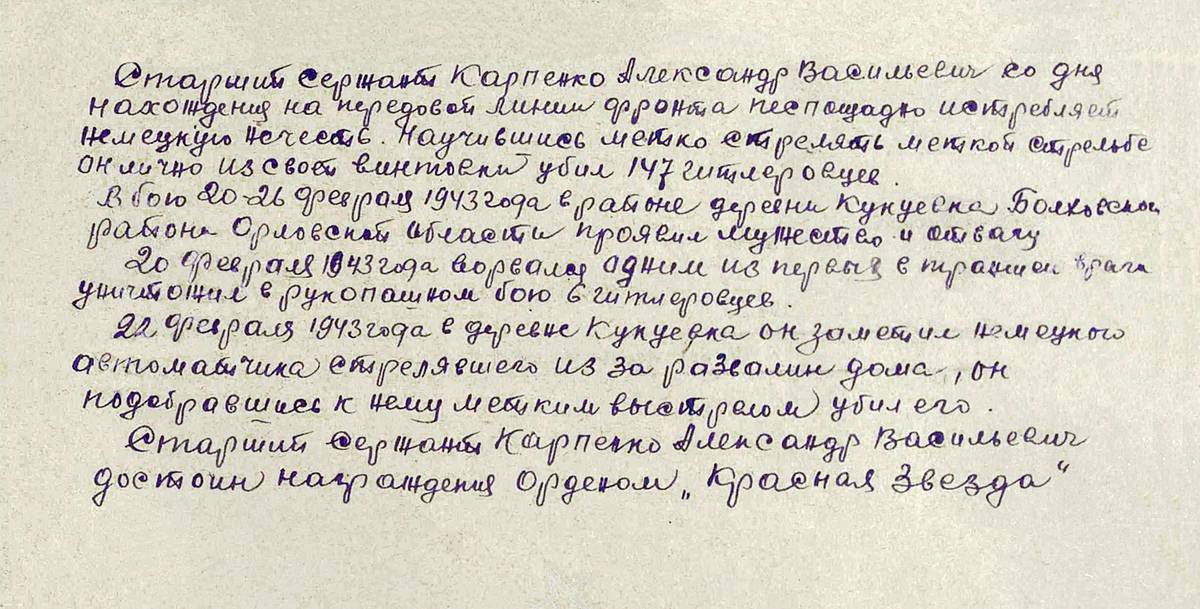 Старший сержант Карпенко Александр Васильевич со дня
нахождения на передовой линии фронта беспощадно истребляет
немецкую нечесть. Научившись метко стрелять меткой стрельбе
он лично из своей винтовки убил 147 гитлеровцев.
В бою 20-26 февраля 1943 года в районе деревни Кукуевка Болховской
района Орловской области проявил мужество и отвагу
20 февраля 1943 года ворвался одним из первых в траншеи врага
уничтожил в рукопашном бою 6 гитлеровцев.
22 февраля 1943 года в деревне Кукуевка он заметил немецкого
автоматчика стрелявшего из за развалин дома, он
подобравшись к нему метким выстрелом убил его.
Старший сержант Карпенко Александр Васильевич
достоин награждения Орденом „Красная Звезда“